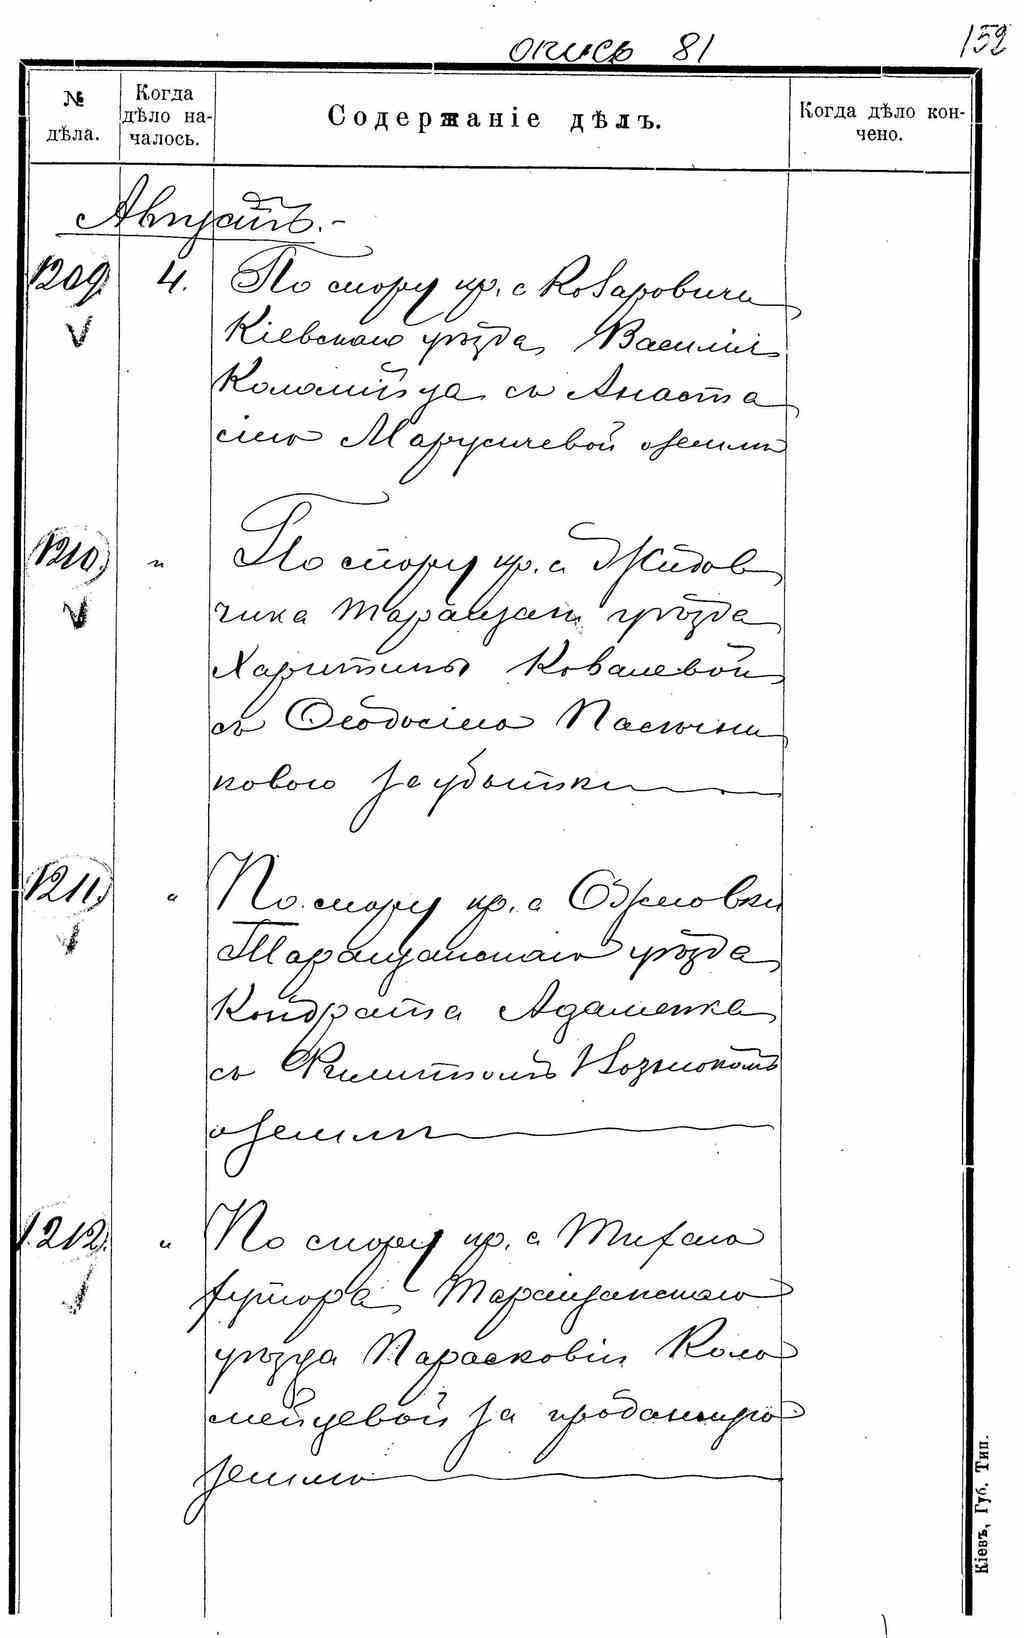 опись 81
152
№ дѣла.
Когда дѣло началось.
Содержаніе дѣлъ.
Когда дѣло кончено.
Августъ.-
1209. 4. По спору кр. с Козаровичи
Кіевскаго уѣзда, Василія
Коломійца съ Анаста
сіею Марусичевой о землѣ
1210. " По спору кр. с. Жидов
чика Таращан. уѣзда
Харитины Ковалевой
съ Ѳеодосіею Пасѣчни
ковою за убытки
1211. " По спору кр. с
Таращанскаго уѣзда
Кондрата Адаменка
съ Филиппомъ
о землѣ
1212. " По спору кр. с. Тихаго
хутора, Таращанскаго
уѣзда Парасковіи Коло
мейцевой за проданную
землю
Кіевъ, Губ. Тип.